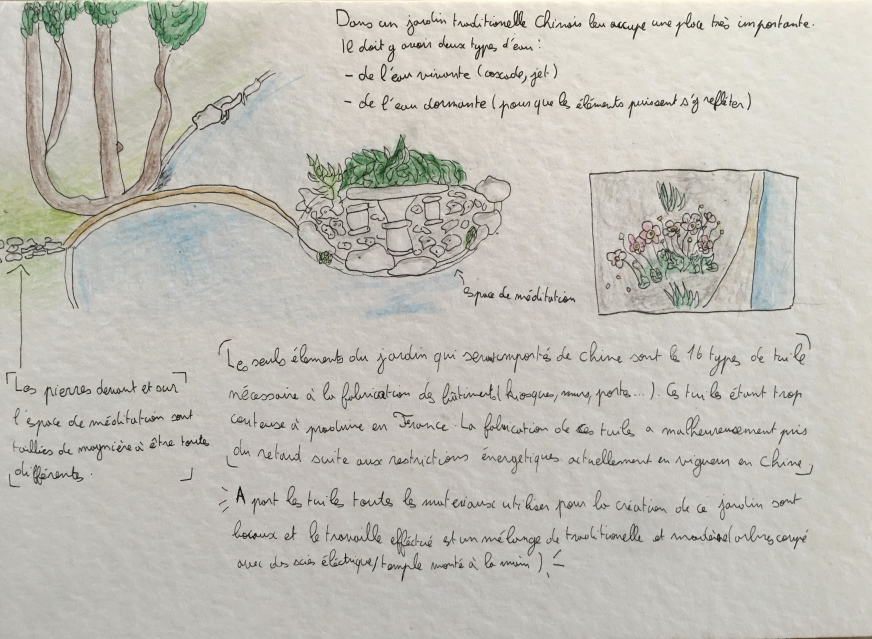 Dans un jardin traditionelle Chinois leu occupe une place très importante.
Il doit y avoir deux types d'eau :
- de l'eau vivante (cascade, jet)
- de l'eau dormante (pour que les éléments puissent s'y refléter)
espace de méditation
Les seuls éléments du jardin qui seront importés de chine sont le 16 types de tuile
nécessaire à la fabrication des bâtiments (kiosques, murs, portes...). Ces tuiles étant trop
couteuse à produire en France. La fabrication de ces tuiles a malheureusement pris
du retard suite aux restrictions énergetiques actuellement en vigueur en Chine
Les pierres devant et sur
l'espace de méditation sont
taillées de maynière à être toutes
différentes.
A part les tuiles toute les materiaux utiliser pour la création de ce jardin sont
locaux et le travaille efféctué est un mélange de traditionelle et moderne (arbres coupé
avec des scies éléctrique/temple monté à la main)